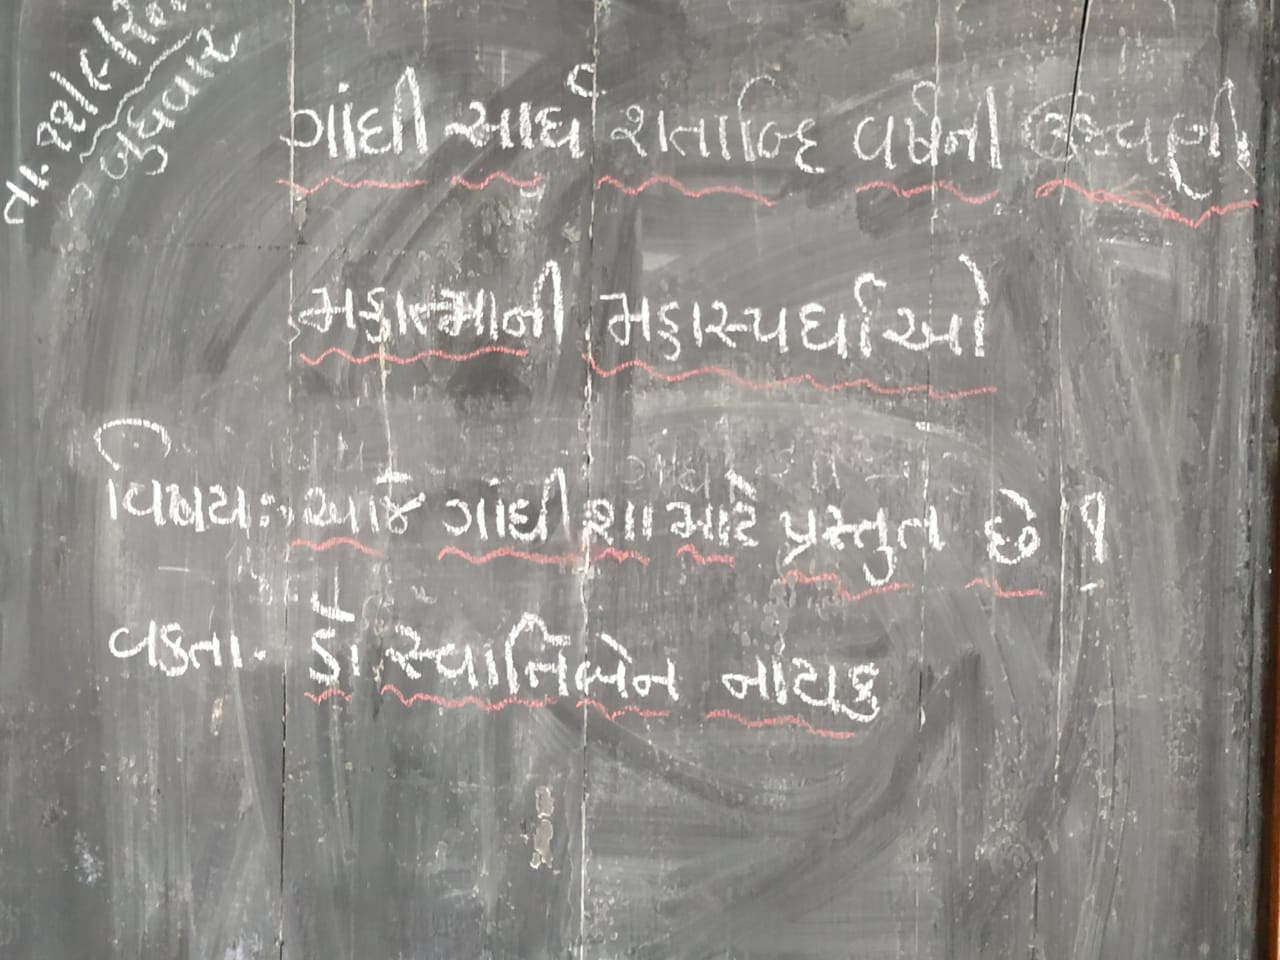 બુધવાર
ગાંધી સાર્ધ શતાબ્દિ વર્ષની ઉજવણી
મહાત્માની મહાસ્પર્ધાઓ
વિષય: આજે ગાંધી શા માટે પ્રસ્તુત છે ?
વકતા. ડૉ સ્વાતિબેન નાયક